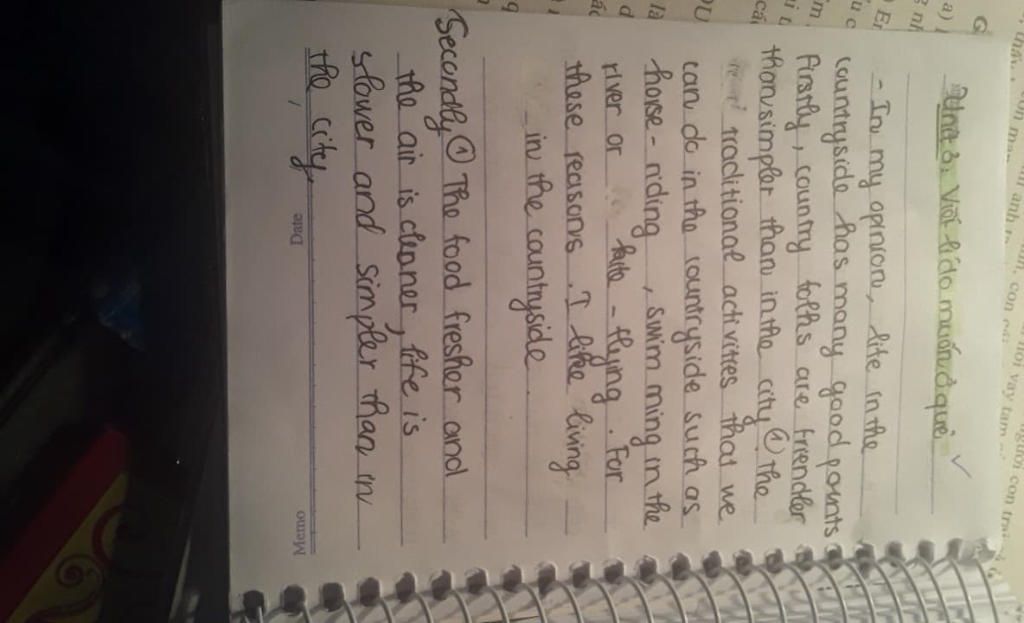 Unit 3: Viết lí do muốn ở quê
- In my opinion, life in the
countryside has many good pounts
Firstly, country folks are friender
thom simpler than in the city ① The
traditional activities that we
can do in the countryside such as
horse-riding, swimming in the
river or kite-flying. For
these reasons. I like living
in the countryside.
Secondly ① The food fresher and
the air is cleaner, life is
slower and simpler than in
the city.
Date
Memo